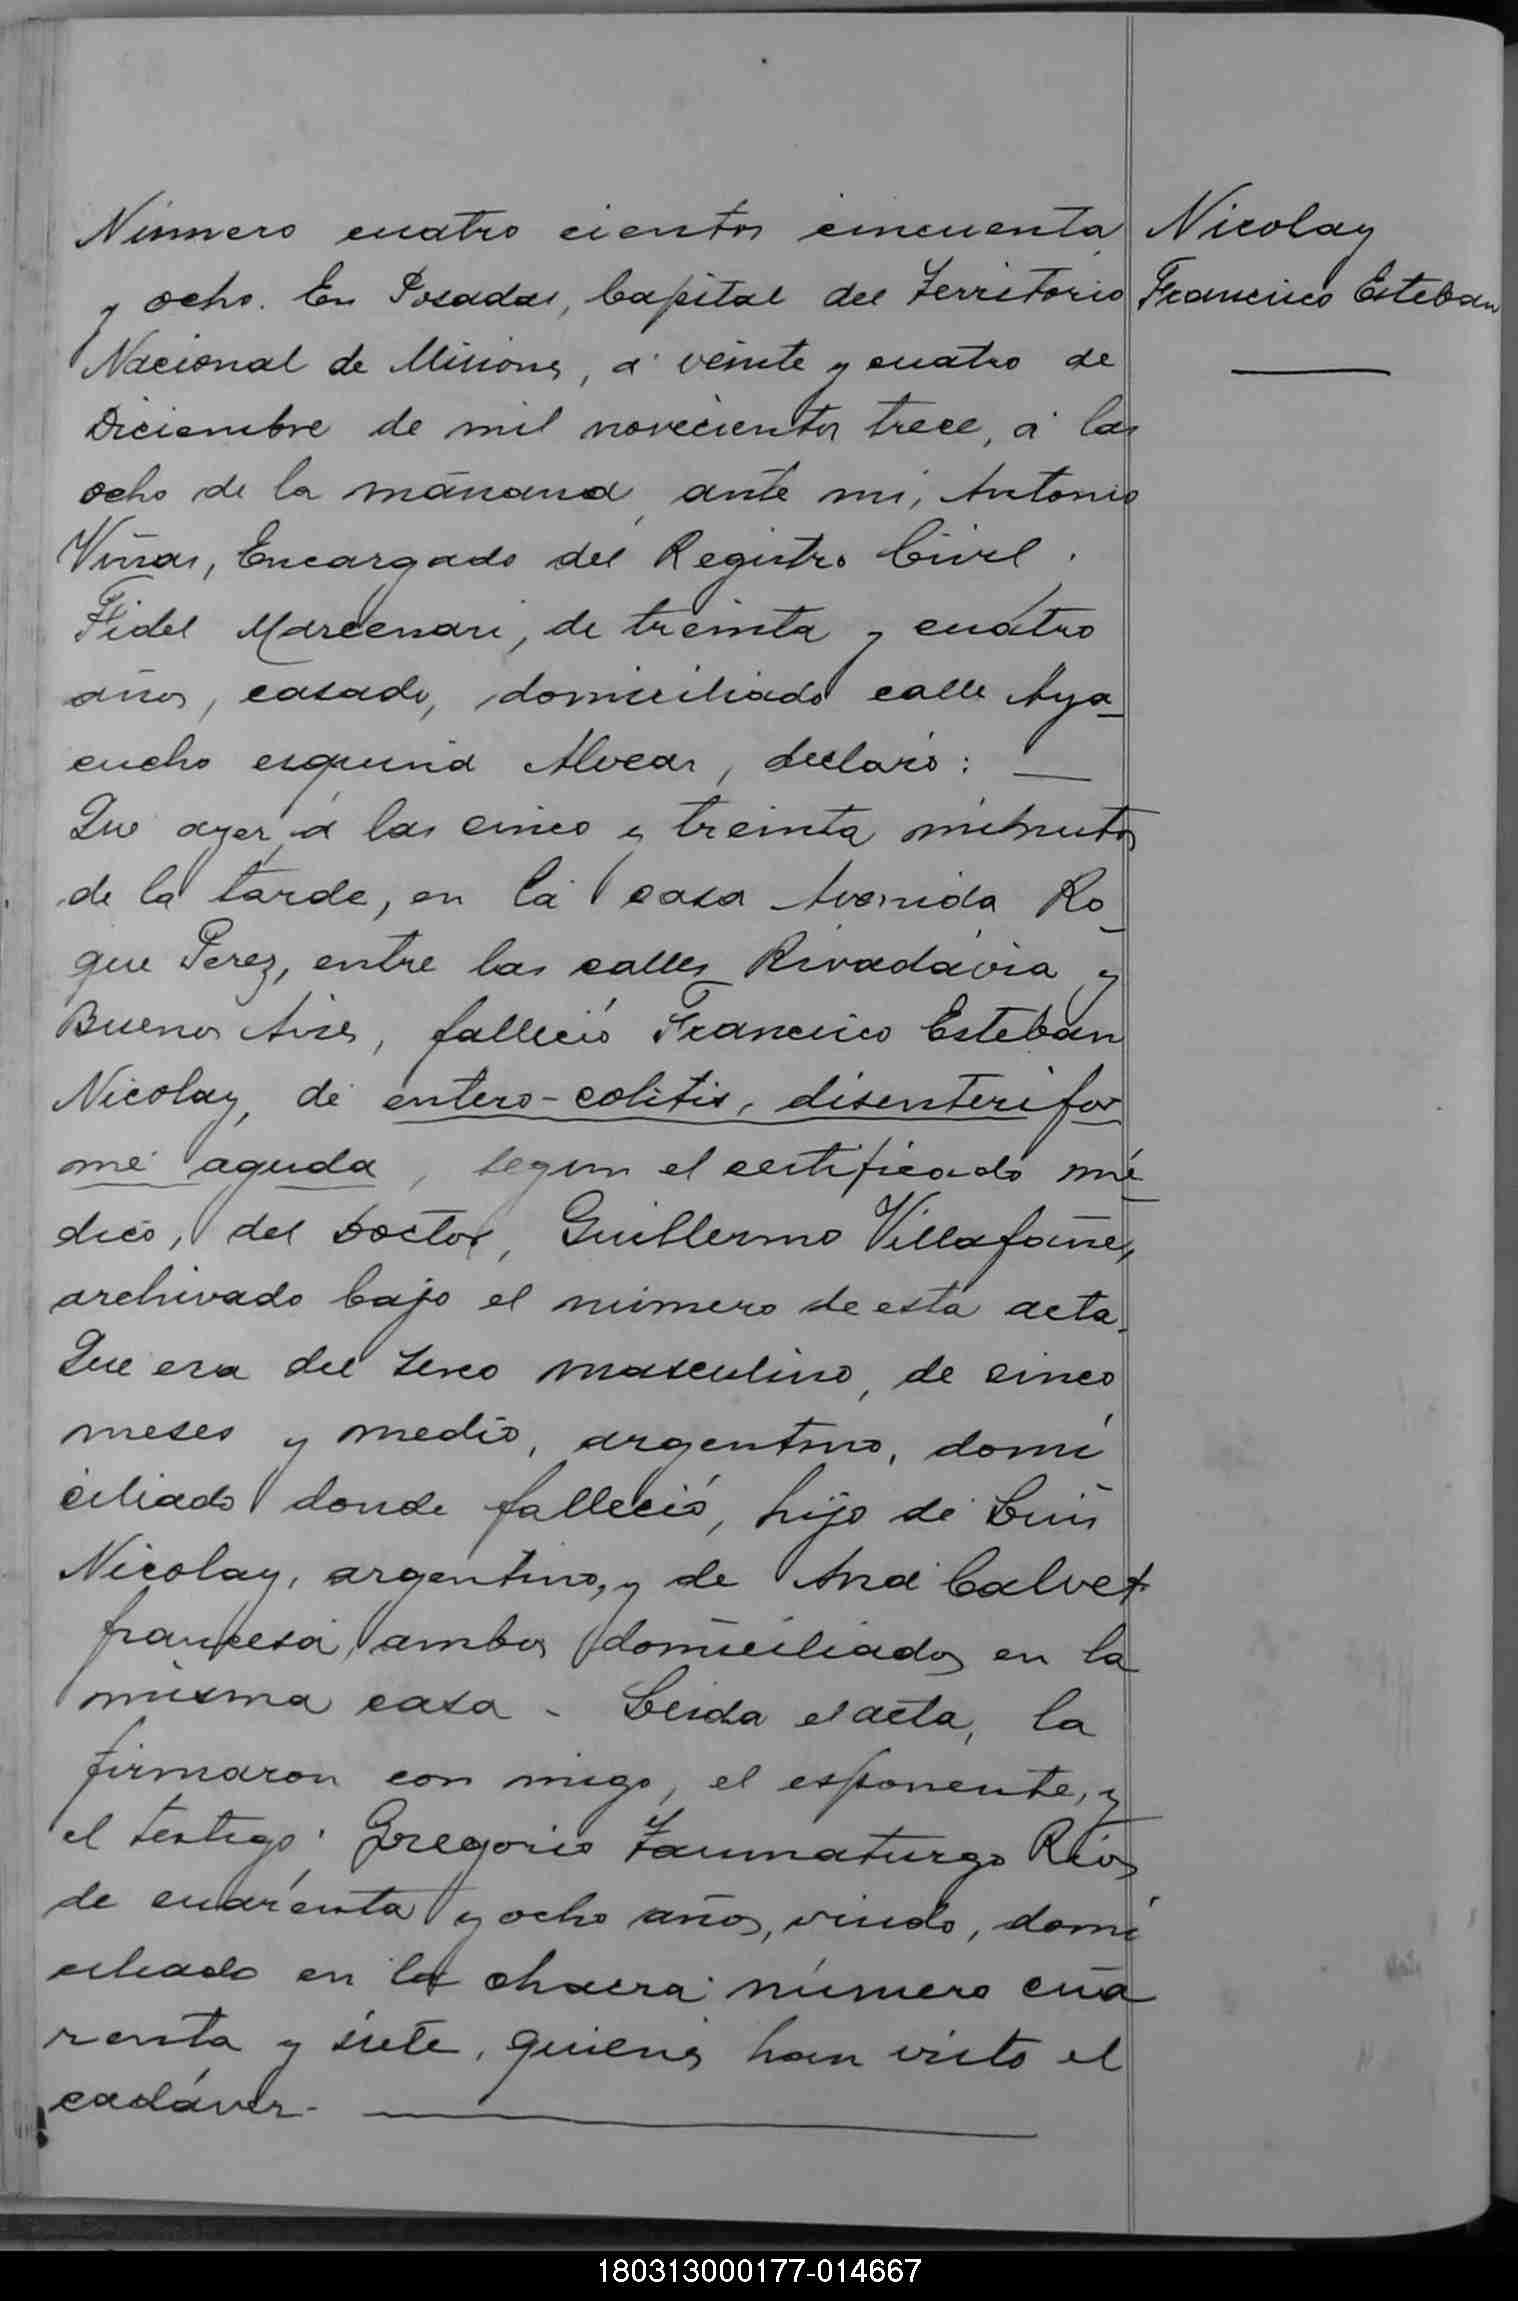 Nicolay
Francisco Esteban
Número cuatro cientos cincuenta
y ocho. En Posadas, Capital del Territorio
Nacional de Misiones, á veinte y cuatro de
Diciembre de mil novecientos trece, á las
ocho de la mañana, ante mi, Antonio
Viñas, Encargado del Registro Civil.
Fidel Marcenari, de treinta y cuatro
años, casado, domiciliado calle Aya-
cucho esquina Alvear, declaró:
Que ayer á las cinco y treinta minutos
de la tarde, en la casa Avenida Ro-
que Perez, entre las calles Rivadavia y
Buenos Aires, falleció Francisco Esteban
Nicolay, de entero-colitis, disenterifor
me aguda, segun el certificado mé-
dico, del Doctor, Guillermo Villafañe,
archivado bajo el número de esta acta.
Que era del sexo masculino, de cinco
meses y medio, argentino, domi
ciliado donde falleció, hijo de Luis
Nicolay, argentino, y de Ana Calvet
francesa, ambos domiciliados en la
misma casa - Leida el acta, la
firmaron con migo, el esponente, y
el testigo: Gregorio Taumaturgo Rios
de cuarenta y ocho años, viudo, domi
ciliado en la chacra número cua
renta y siete, quienes han visto el
cadáver-
180313000177-014667